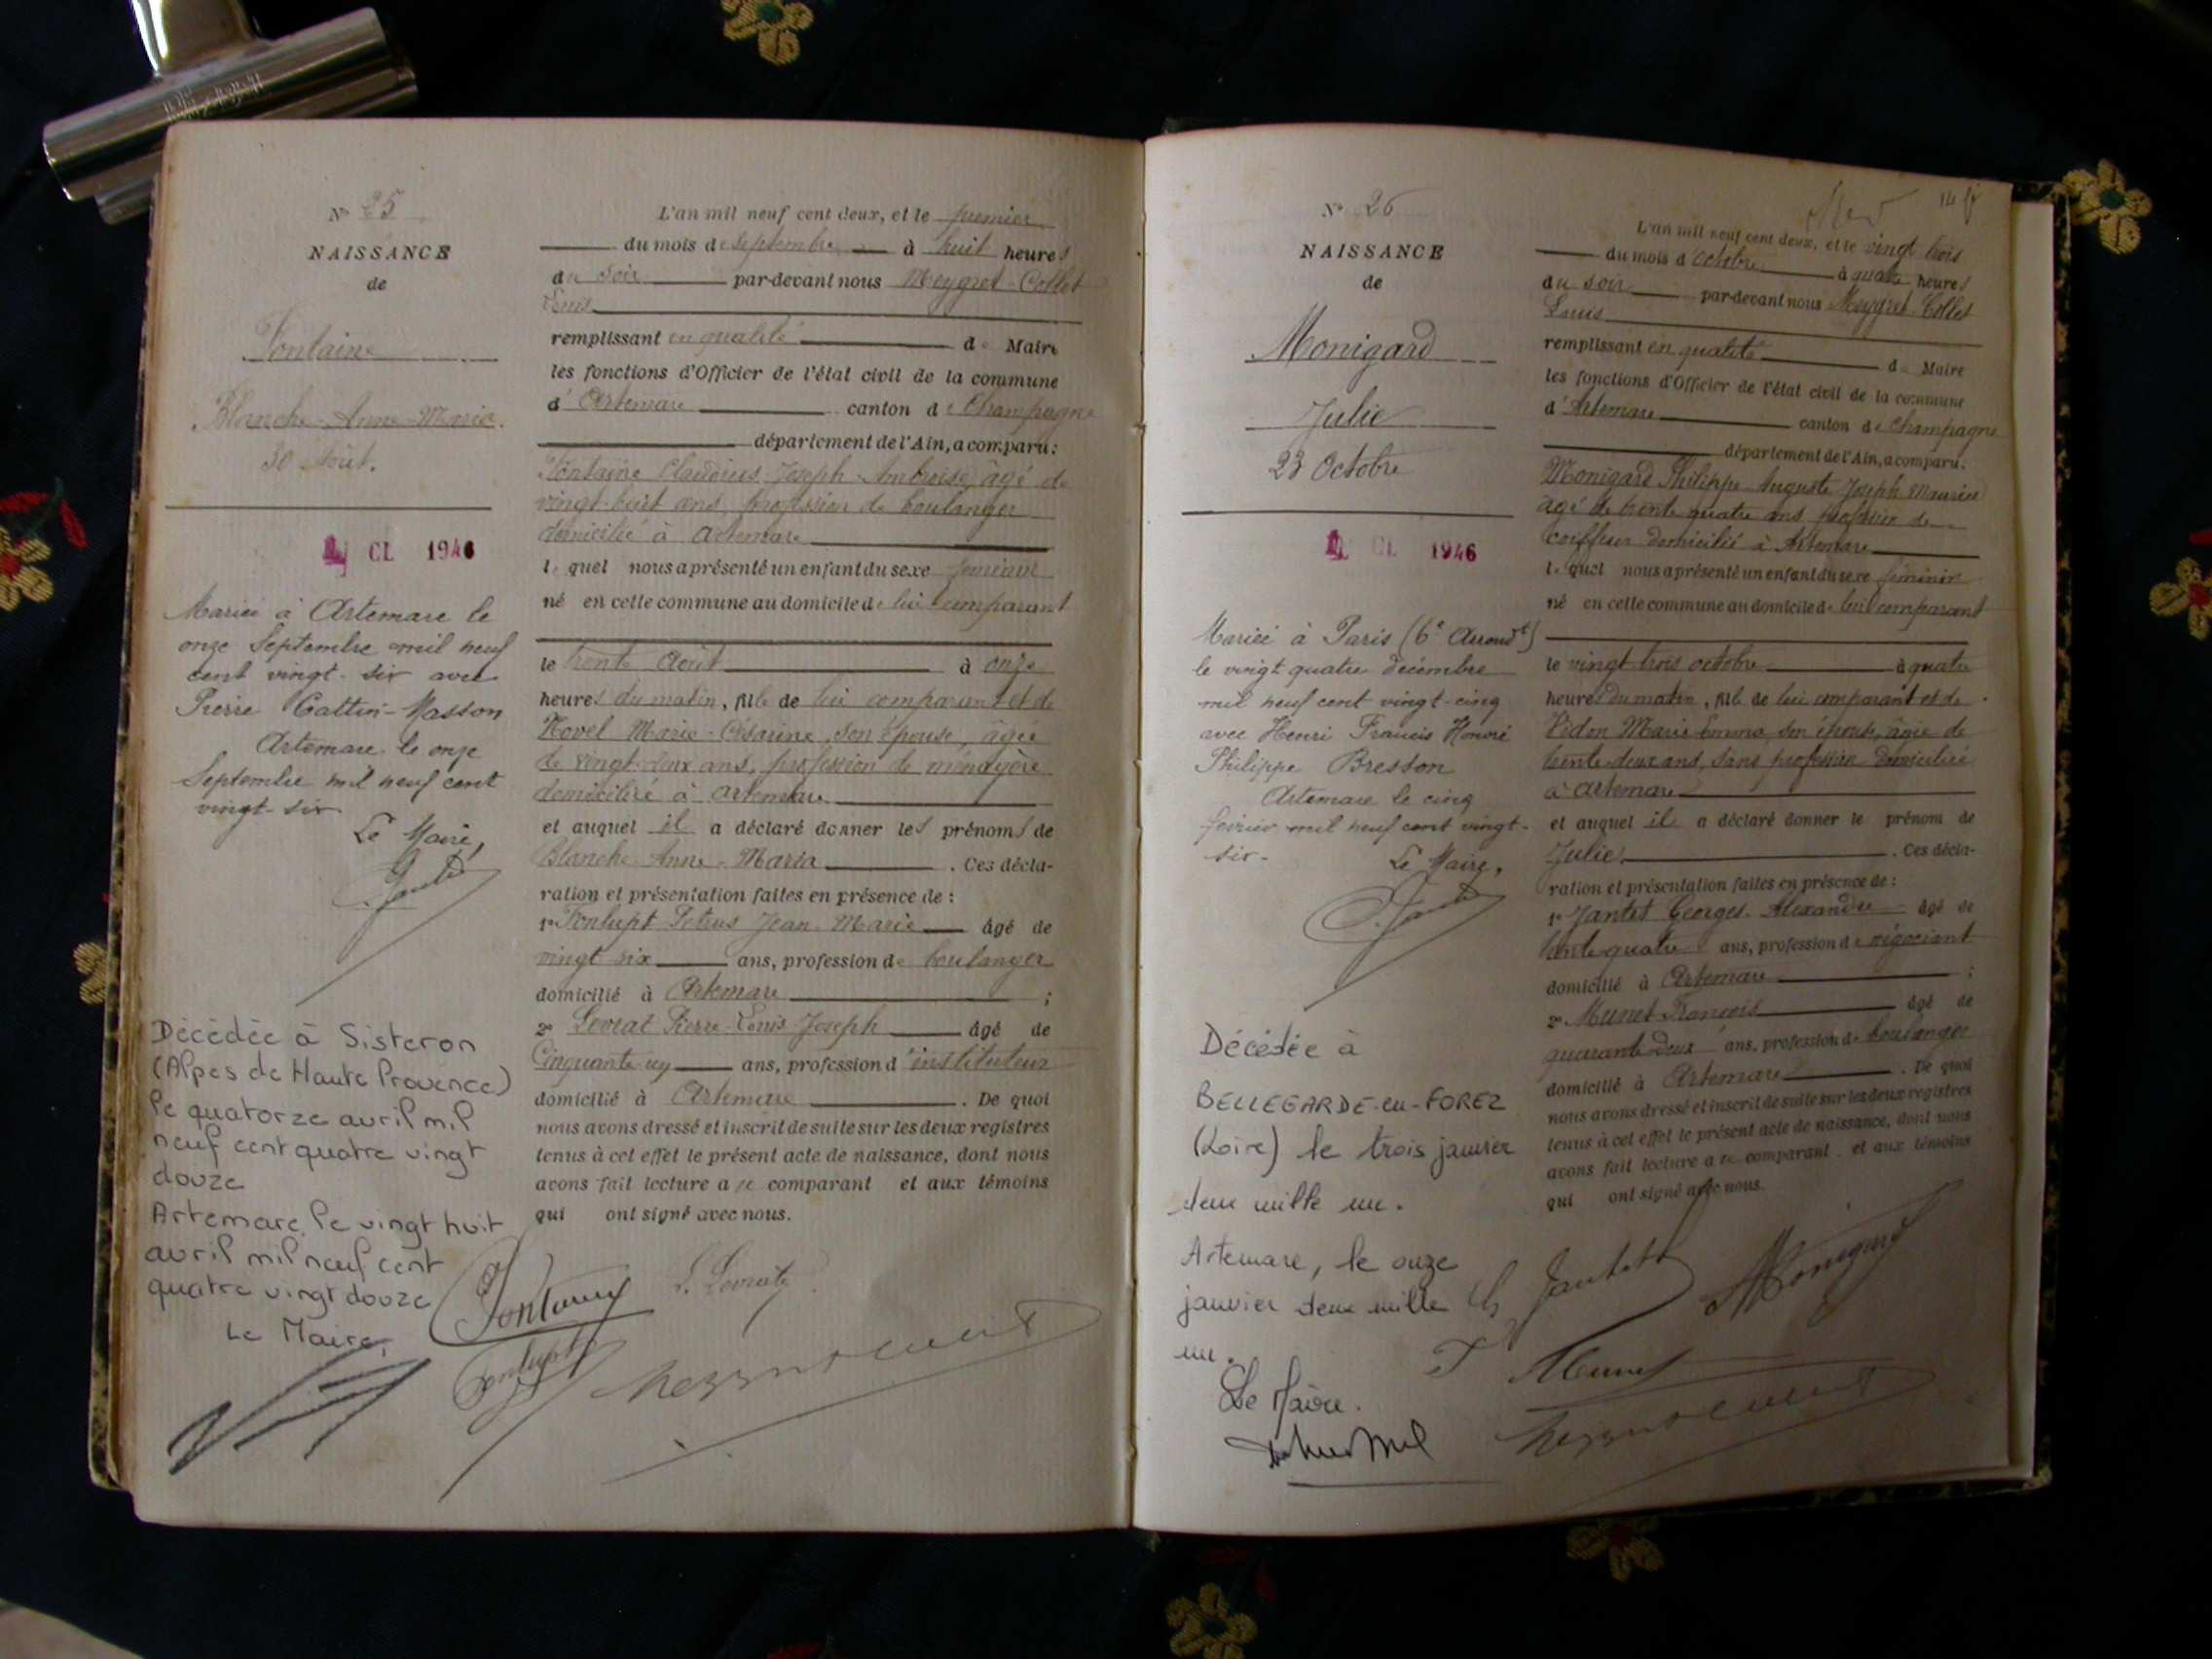 N° 25
NAISSANCE
de
Fontaine
Blanche-Anne-Maria.
30 Août.
CL 1946
Mariée à Artemare le
onze Septembre mil neuf
cent vingt-six avec
Pierre Cattin-Masson
Artemare le onze
Septembre mil neuf cent
vingt-six
Le Maire,
Décédée à Sisteron
(Alpes de Haute Provence)
le quatorze avril mil
neuf cent quatre vingt
douze
Artemare, le vingt huit
avril mil neuf cent
quatre vingt douze
Le Maire,
L'an mil neuf cent deux, et le premier
du mois de Septembre à huit heures
du soir par-devant nous Meygret-Collet
Louis
remplissant en qualité de Maire
les fonctions d'Officier de l'état civil de la commune
d'Artemare canton de Champagne
département de l'Ain, a comparu:
Fontaine Claudius-Joseph-Ambroise, âgé de
vingt-huit ans, profession de boulanger
domicilié à Artemare
lequel nous a présenté un enfant du sexe féminin
né en cette commune au domicile de lui comparant
le trente Août à onze
heures du matin, fille de lui comparant et de
Hovel Marie-Césarine, son épouse, âgée
de vingt-deux ans, profession de ménagère
domiciliée à Artemare
et auquel il a déclaré donner les prénoms de
Blanche-Anne-Maria. Ces décla-
ration et présentation faites en présence de :
1° Fonlupt Petrus Jean-Marie âgé de
vingt six ans, profession de boulanger
domicilié à Artemare ;
2° Levrat Pierre-Louis Joseph âgé de
Cinquante-un ans, profession d'instituteur
domicilié à Artemare. De quoi
nous avons dressé et inscrit de suite sur les deux registres
tenus à cet effet le présent acte de naissance, dont nous
avons fait lecture a le comparant et aux témoins
qui ont signé avec nous.
Fontaine
L. Levrat
Fonlupt
N° 26
NAISSANCE
de
Monigard
Julie
23 Octobre
CL 1946
Mariée à Paris (6e Arrondt)
le vingt quatre décembre
mil neuf cent vingt-cinq
avec Henri Francis Honoré
Philippe Bresson
Artemare le cinq
février mil neuf cent vingt-
six.
Le Maire,
Décédée à
BELLEGARDE-en-FOREZ
(Loire) le trois janvier
deux mille un.
Artemare, le onze
janvier deux mille
un.
Le Maire.
14
L'an mil neuf cent deux, et le vingt trois
du mois d'octobre à quatre heures
du soir par-devant nous Meygret-Collet
Louis
remplissant en qualité de Maire
les fonctions d'Officier de l'état civil de la commune
d'Artemare canton de Champagne
département de l'Ain, a comparu:
Monigard Philippe-Auguste Joseph Maurice
âgé de trente quatre ans profession de
coiffeur domicilié à Artemare
lequel nous a présenté un enfant du sexe féminin
né en cette commune au domicile de lui comparant
le vingt trois octobre à quatre
heures du matin, fille de lui comparant et de
Vidon Marie Emma, son épouse, âgée de
trente-deux ans, sans profession domiciliée
à Artemare
et auquel il a déclaré donner le prénom de
Julie. Ces décla-
ration et présentation faites en présence de :
1° Jantet Georges-Alexandre âgé de
trente quatre ans, profession de négociant
domicilié à Artemare ;
2° Munet François âgé de
quarante-deux ans, profession de boulanger
domicilié à Artemare. De quoi
nous avons dressé et inscrit de suite sur les deux registres
tenus à cet effet le présent acte de naissance, dont nous
avons fait lecture a le comparant et aux témoins
qui ont signé avec nous.
G. Jantet
Monigard
F Munet